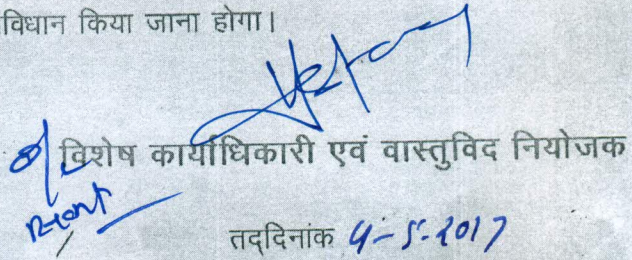 विधान किया जाना होगा।
विशेष कार्याधिकारी एवं वास्तुविद नियोजक
तद्दिनांक 4-5-2017